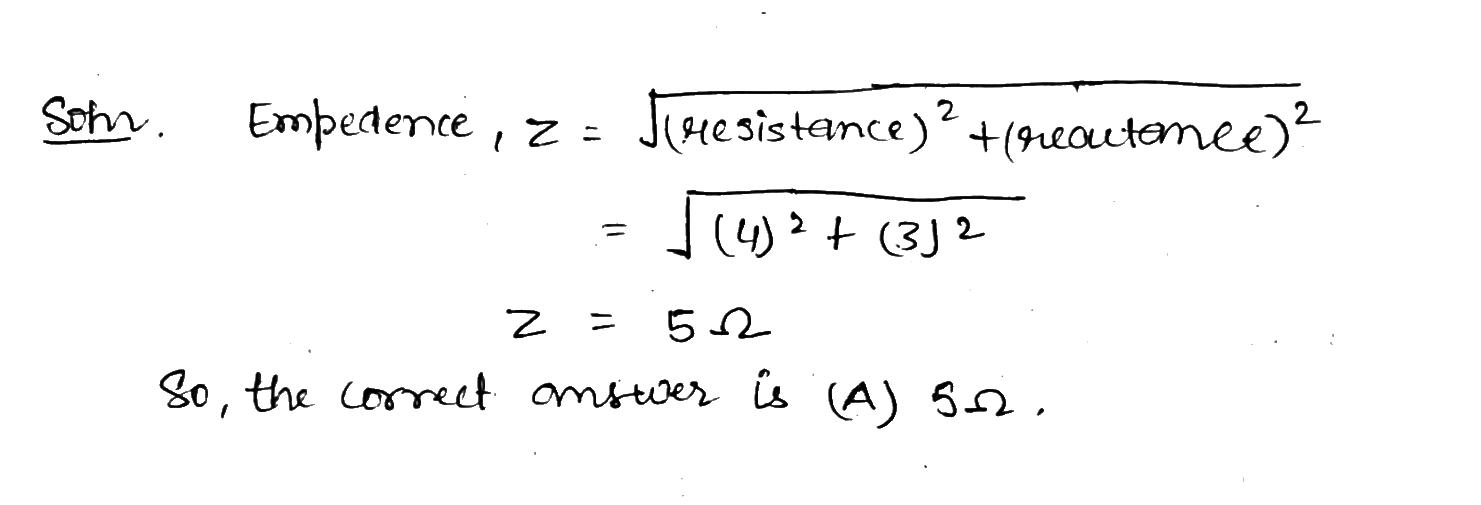 Soln. Empedence, Z = √(resistance)² + (reactance)²
= √(4)² + (3)²
Z = 5Ω
So, the correct answer is (A) 5Ω.